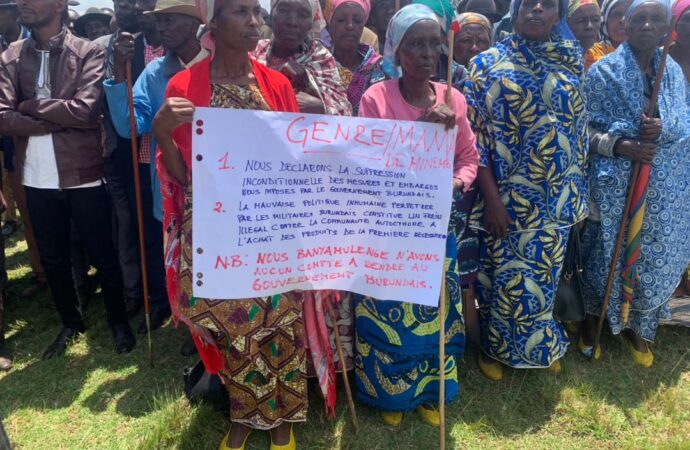 GENRE/MAMA
DE MINEMBWE
1. NOUS DECLARONS LA SUPPRESSION
INCONDITIONNELLE DES MESURES ET EMBARGOS
NOUS IMPOSES PAR LE GOUVERNEMENT BURUNDAIS.
2. LA MAUVAISE POLITIQUE INHUMAINE PERPETREE
PAR LES MILITAIRES BURUNDAIS CONSTITUE UN FREIN
ILLEGAL CONTRE LA COMMUNAUTE AUTOCTHONE, A
L'ACHAT DES PRODUITS DE LA PREMIERE NECESSITE
N.B: NOUS BANYAMULENGE N'AVONS
AUCUN COMPTE A RENDRE AU
GOUVERNEMENT BURUNDAIS.